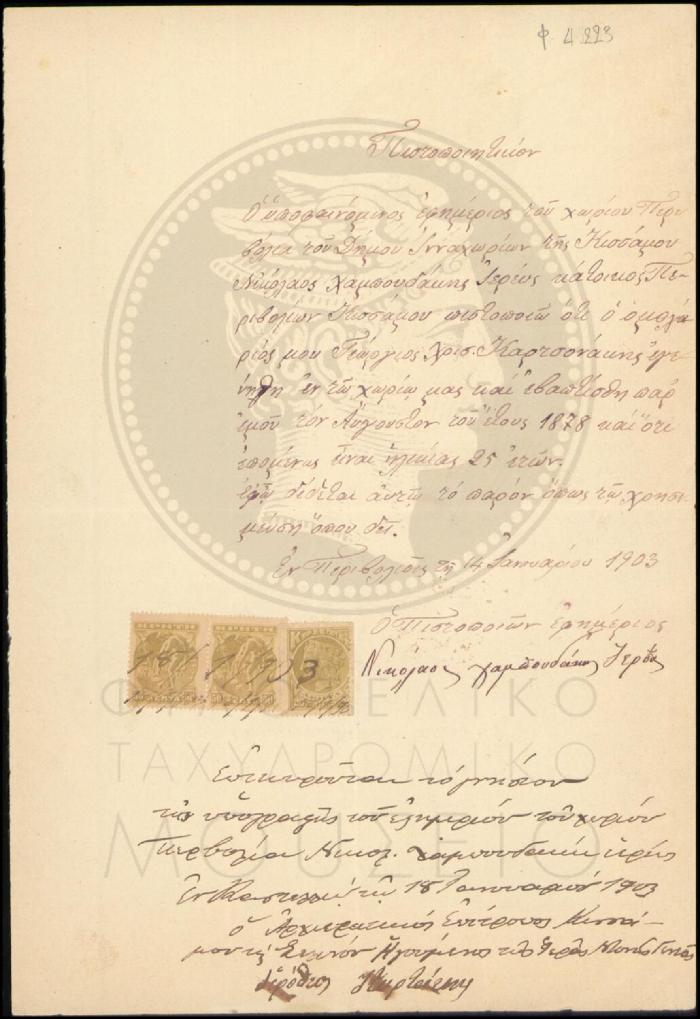 φ 4223
Πιστοποιητικόν
Ὁ ὑποφαινόμενος ἐφημέριος τοῦ χωρίου Περι
βόλια τοῦ Δήμου Ἰνναχωρίων τῆς Κισσάμου
Νικόλαος Χαμπουδάκης Ἱερεύς κάτοικος Πε-
ριβολίων Κισσάμου πιστοποιῶ ὅτι ὁ
μου Γεώργιος Χρισ. Καρτσονάκης ἐγε-
νήθη ἐν τῶ χωρίω μας καί ἐβαπτίσθη παρ
ἐμοῦ τόν Αὔγουστον τοῦ ἔτους 1878 καί ὅτι
ἑπομένως εἶναι ἡλικίας 25 ἐτῶν.
δίδεται αὐτῷ τό παρόν ὅπως τῶ χρησι
μεύσῃ ὅπου δεῖ.
Ἐν Περιβολίοις τῇ 14 Ἰανουαρίου 1903
Ὁ Πιστοποιῶν Ἐφημέριος
Νικόλαος χαμπουδάκης Ἱερεύς
ΦΙΛΟΤΕΛΙΚΟ
ΤΑΧΥΔΡΟΜΙΚΟ
ΜΟΥΣΕΙΟ
Ἐπικυροῦται τό γνήσιον
τῆς ὑπογραφῆς τοῦ ἐφημερίου τοῦ χωρίου
Περβολια Νικολ. χαμπουδάκη ἱερέως
Ἐν Καστελλίῳ τῇ 18 Ἰανουαρίου 1903
ὁ Ἀρχιερατικός Ἐπίτροπος Κισσά-
μου Ἡγούμενος τῆς Ἱερᾶς Μονῆς Γωνιᾶς